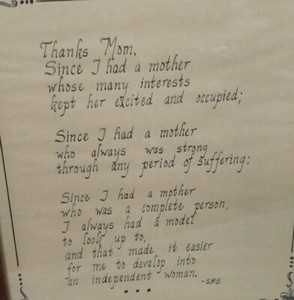 Thanks Mom.
Since I had a mother
whose many interests
kept her excited and occupied;
Since I had a mother
who always was strong
through any period of suffering;
Since I had a mother
who was a complete person,
I always had a model
to look up to,
and that made it easier
for me to develop into
an independent woman.
-S.P.S.